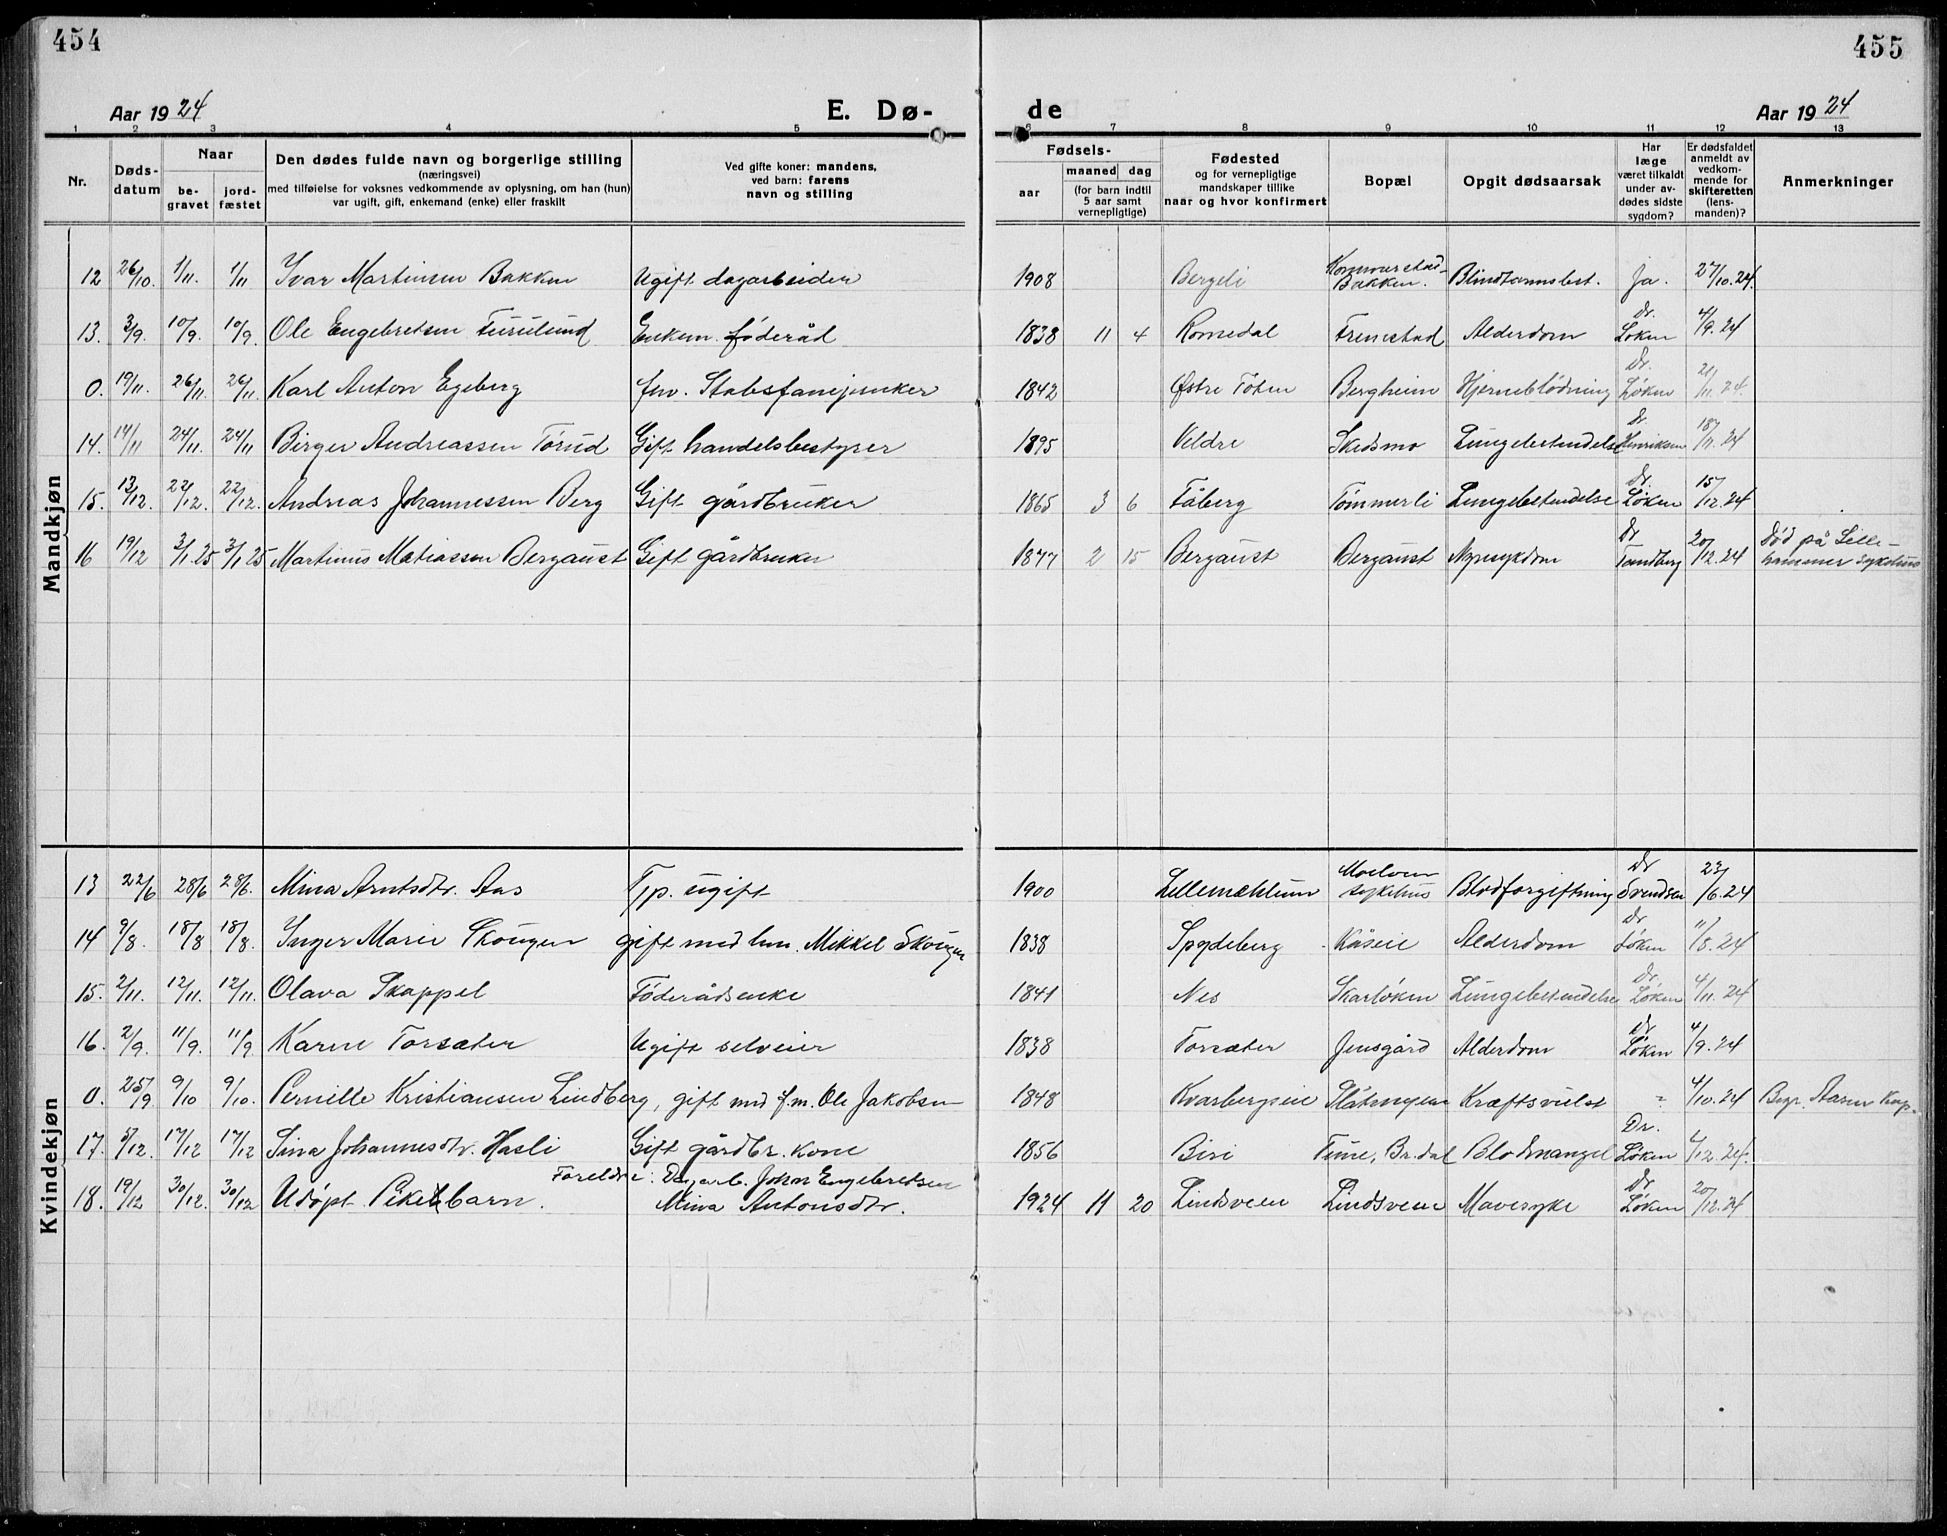 454
455
Aar 1924
E. Dø-
de
Aar 1924
1 2 3 4 5 6 7 8 9 10 11 12 13
Nr.
Døds-
datum
Naar
be-
gravet
jord-
fæstet
Den dødes fulde navn og borgerlige stilling
(næringsvei)
med tilføielse for voksnes vedkommende av oplysning, om han (hun)
var ugift, gift, enkemand (enke) eller fraskilt
Ved gifte koner: mandens,
ved barn: farens
navn og stilling
Fødsels-
aar
maaned dag
(for barn indtil
5 aar samt
vernepligtige)
Fødested
og for vernepligtige
mandskaper tillike
naar og hvor konfirmert
Bopæl
Opgit dødsaarsak
Har
læge
været tilkaldt
under av-
dødes sidste
sygdom?
Er dødsfaldet
anmeldt av
vedkom-
mende for
skifteretten
(lens-
manden)?
Anmerkninger
Mandkjøn
12 26/10. 1/11. 1/11 Ivar Martinsen Bakken Ugift dagarbeider 1908 Bergeli Kommerstad-Bakken. Blindtarmsbet. Ja. 27/10.24.
13. 3/9. 10/9. 10/9. Ole Engebretsen Furulund Enkem. føderåd 1838 11 4 Romedal Fremstad Alderdom Dr. Løken 4/9.24
0. 19/11. 26/11. 26/11 Karl Anton Egeberg fm. Stabsfanejunker 1842 Østre Toten Bergheim Hjerneblødning Dr. Løken 21/11.24.
14. 14/11 24/11. 24/11 Birger Andreassen Torud Gift handelsbestyrer 1895 Veldre Skedsmo Lungebetendelse Dr. Henriksen 18/11.24
15. 13/12. 22/12. 22/12. Andreas Johannessen Berg Gift gårdbruker 1865 3 6 Fåberg Tømmerli Lungebetendelse Dr. Løken 15/12.24
16 19/12 3/1.25 3/1 25 Martinus Matiassen Bergaust Gift gårdbruker 1877 2 15 Bergaust Bergaust Nyresykdom Dr Tandberg 20/12.24 Død på Lille-
hammer sykehus
Kvindekjøn
13 22/6 28/6 28/6. Mina Arntsdtr. Aas Tjp. ugift 1900 Lillemæhlum Moelven sykehus Blodforgiftning Dr Svendsen 23/6.24
14 9/8. 18/8 18/8. Inger Marie Skougen gift med hm. Mikkel Skougen 1838 Spydeberg Kåseie Alderdom Dr Løken 11/8.24
15. 2/11. 12/11. 12/11. Olava Skappel Føderådsenke 1841 Nes Skarløken Lungebetendelse Dr. Løken 4/11.24
16. 2/9. 11/9. 11/9 Karen Torsæter Ugift selveier 1838 Torsæter Jensgård Alderdom Dr Løken 4/9.24
0. 25/9 9/10 9/10. Pernille Kristiansen Lindberg, gift med f.m. Ole Jakobsen 1848 Kvarbergseie Slåtmyren Kræftsvulst - 4/10.24 Begr. Aasmar Kap.
17. 5/12. 17/12 17/12 Sina Johannesdtr. Hasli Gift gårdbr. kone 1856 Biri Tune, Br.dal Blodmangel Dr. Løken /12.24.
18. 19/12 30/12. 30/12 Udøpt Pikebarn. Foreldre: Dagarb. John Engebretsen
Mina Antonsdtr. 1924 11 20 Lindsveen Lindsveen Mavesyke Dr Løken 20/12.24